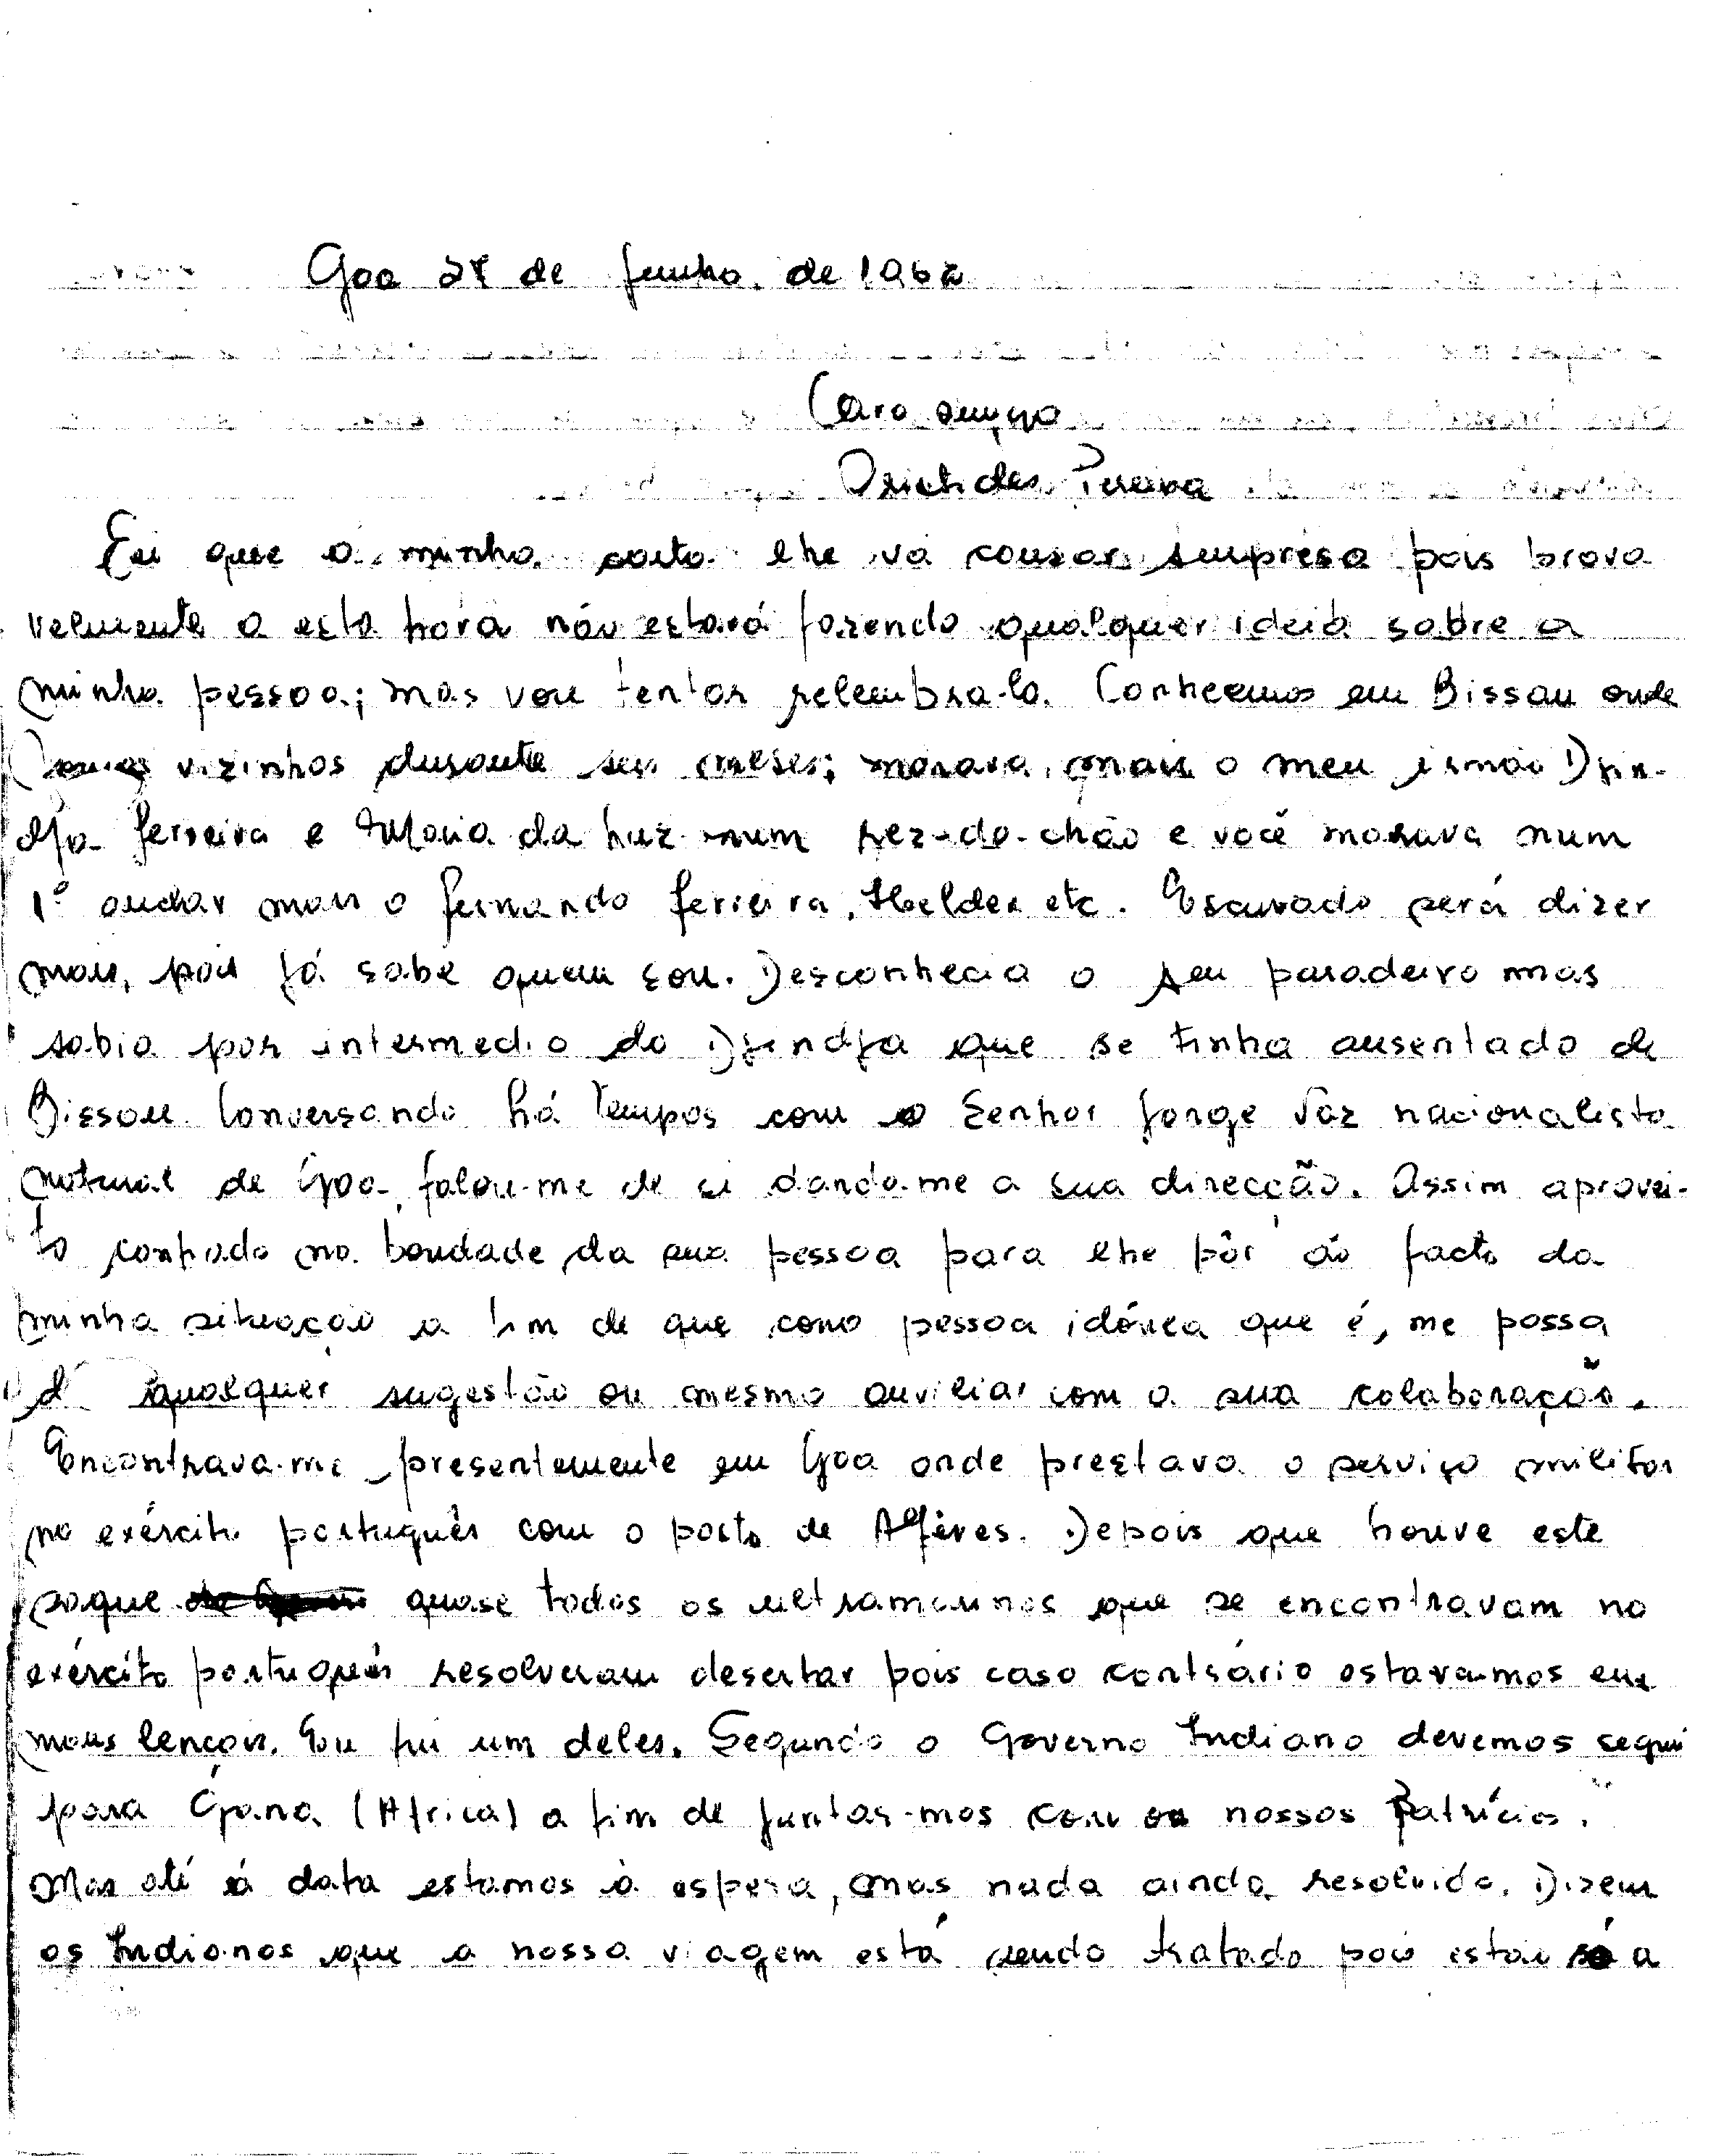 Goa 27 de Junho de 1962
Caro amigo
Aristides Pereira
Sei que a minha carta lhe vá causar surpresa pois prova
velmente a esta hora não estará fazendo qualquer ideia sobre a
minha pessoa; mas vou tentar relembra-lo. Conhecemos em Bissau onde
vizinhos durante seis meses; morava mais o meu irmão Djin-
dja Ferreira e Maria da Luz num rez-do-chão e você morava num
1º andar mais o Fernando Ferreira, Helder etc. Escusado será dizer
mais, pois já sabe quem sou. Desconhecia o seu paradeiro mas
sabia por intermedio do Djindja que se tinha ausentado de
Bissau. Conversando há tempos com o Senhor Jorge Vaz nacionalista
natural de Goa, falou-me de si dando-me a sua direcção. Assim aprovei-
to confiado na bondade da sua pessoa para lhe pôr ao facto da
minha situação a fim de que como pessoa idónea que é, me possa
qualquer sugestão ou mesmo auxiliar com a sua colaboração.
Encontrava-me presentemente em Goa onde prestava o serviço militar
no exército português com o posto de Alferes. Depois que houve este
saque quase todos os ultramarinos que se encontravam no
exército português resolveram desertar pois caso contrário estavamos em
maus lençois. Eu fui um deles. Segundo o Governo Indiano devemos segui
para Gana (Africa) a fim de juntar-mos com os nossos Patrícios.
Mas até á data estamos à espera, mas nada ainda resolvido. Dizem
os Indianos que a nossa viagem está sendo tratado pois estão só a